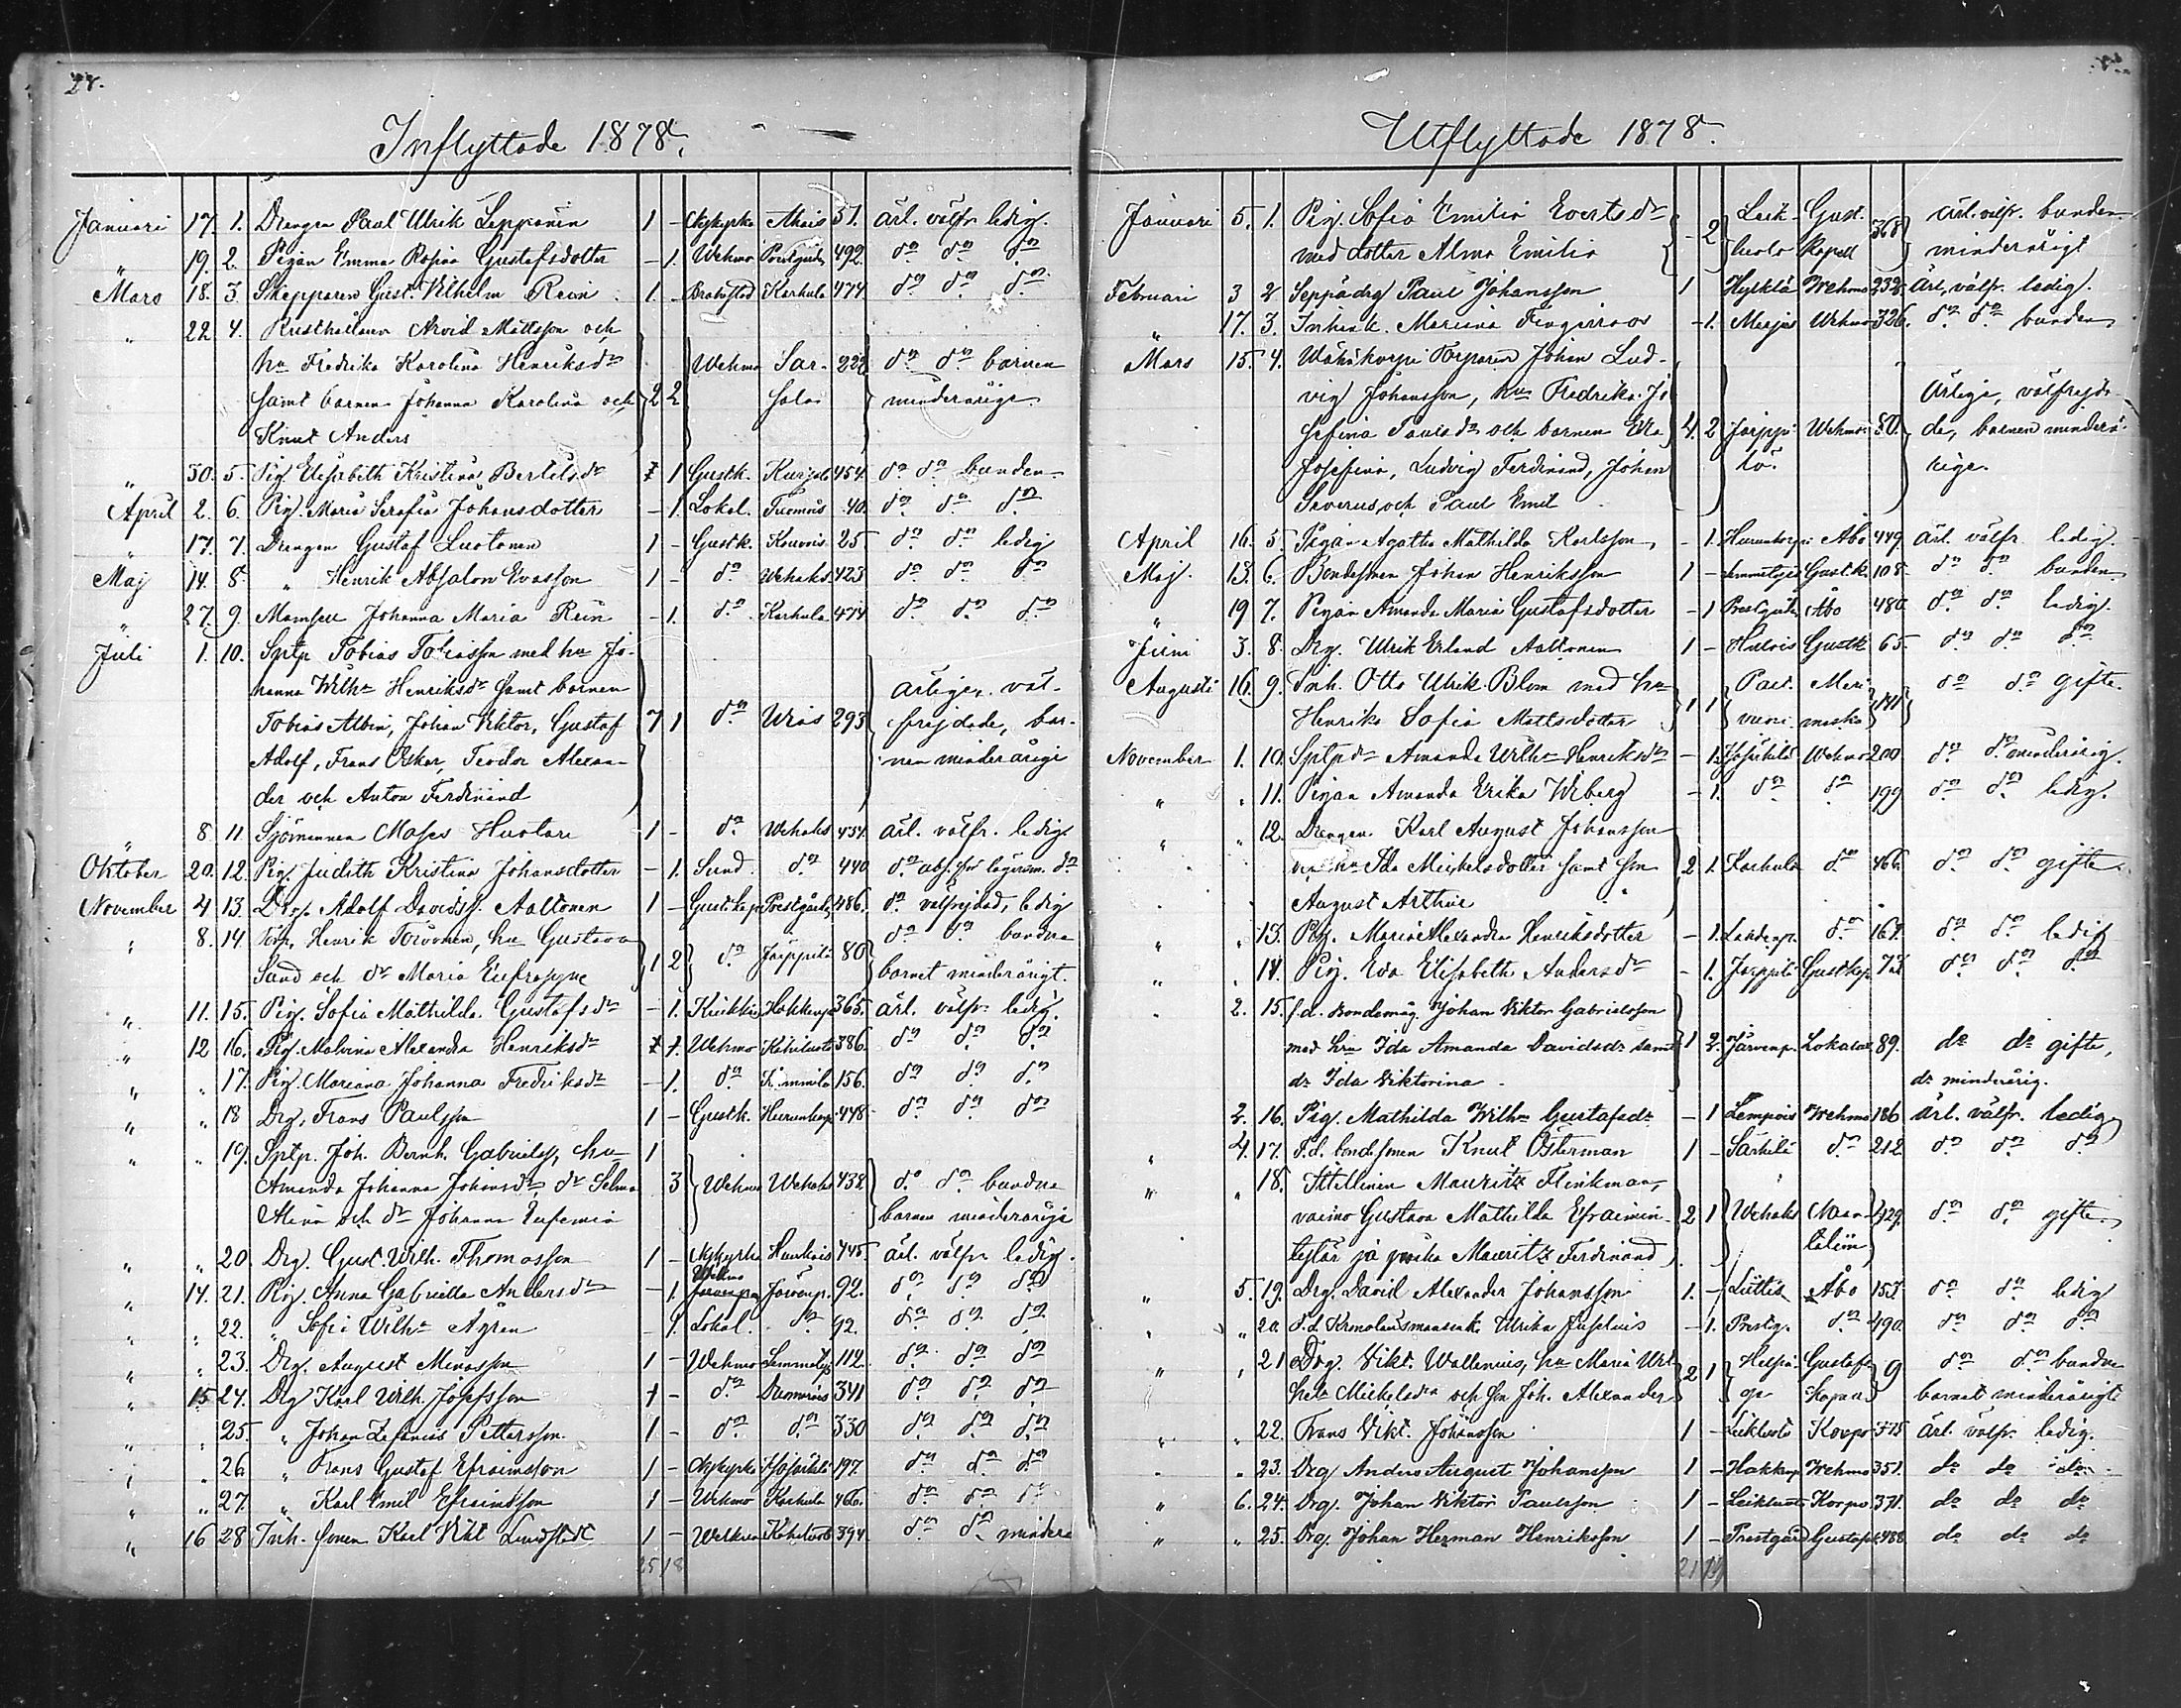 24.
Inflyttade 1878.
Januari 17. 1. Drengen Paul Ulrik Seppänen 1 - Nykyrko 51. ärl. välfr. ledig.
" 19. 2. Pigan Emma Rosina Gustafsdotter - 1. Wehmo Prestgården 492. do do do
Mars 18. 3. Skepparen Gust. Vilhelm Rein 1. - Brahestad Karhula 474 do do do
" 22. 4. Rusthållaren Arvid Mattsson och
hu Fredrika Karolina Henriksdr Wehmo Sar- 222 do do barnen
samt barnen Johanna Karolina och 2 2 sala minderåriga.
Knut Anders
" 30. 5. Pig. Elisabeth Kristina Bertilsdr 1 Gustk. 454. do do bunden
April 2. 6. Pig. Maria Serafia Johansdotter - 1. Lokal. Tuomois 40. do do do
" 17. 7. Drengen Gustaf Luotonen 1 - Gustk. Kouvois 25 do do ledig
Maj 14. 8. " Henrik Absalon Evasson 1 - do Wehaks 423 do do do
" 27. 9. Mamsell Johanna Maria Rein - 1. do Karhula 474 do do do
Juli 1. 10. Sptp Tobias Tobiasson med hu Jo-
hanna Wilha Henriksdr samt barnen ärliga, väl-
Tobias Albin, Johan Viktor, Gustaf 7 1 do Wias 293 frejdade, bar-
Adolf, Frans Oskar, Teodor Alexan- nen minderåriga
der och Anton Ferdinand
" 8 11. Sjömannen Moses Huotari 1 - do Wehaks 434. ärl. välfr. ledig
Oktober 20. 12. Pig. Judith Kristina Johansdotter - 1. Sund. do 440 do abs. för lägersm. do
November 4 13. Drg. Adolf Davidss. Aaltonen 1 - Gust.kap. Prestgården 486. do välfrejdad, ledig
" 8. 14. Torp. Henrik Toivonen, hu Gustava do do bundna
Sand och dr Maria Eufrosyne 1 2 do Jäppilä 80 barnet minderårigt.
" 11. 15. Pig. Sofia Mathilda Gustafsdr - 1. Kiikkis 365. ärl. välfr. ledig.
" 12 16. Pig. Malvina Alexandra Henriksdr 1. Wehmo Kahiluoto 386. do do do
" " 17. Pig. Mariana Johanna Fredriksdr - 1. do 156. do do do
" " 18 Drg. Frans Paulsson 1 - Gustk. 448 do do do
" " 19. Sptp. Joh. Bernh. Gabrielss, hu 1
Amanda Johanna Johansdr, dr Selma 3 Wehmo Wehaks 432 do do bundna
Alina och dr Johanna Eufemia barnen minderåriga
" " 20. Drg. Gust. Wilh. Thomasson 1 - Nykyrko 445. ärl. välfr. ledig.
" 14. 21. Pig. Anna Gabriella Andersdr - 1. Wehmo Järvenp. 92. do do do
" " 22. " Sofia Wilha Ågren 1. Lokal. do 92. do do do
" " 23. Drg. August Minasson 1 - Wehmo 112. do do do
" 15 24. Drg Karl Wilh. Josefsson 1 - do 341 do do do
" " 25. " Johan Zefanias Pettersson. 1 - do do 330 do do do
" " 26. " Frans Gustaf Efraimsson 1 - Nykyrko 197. do do do
" " 27. " Karl Emil Efraimsson 1 - Wehmo Karhula 466. do do do
" 16 28 Inh. sonen Karl Vikt Lundstedt 1 - Kahiluoto 394. do do mindera
25 18
Utflyttade 1878.
Januari 5. 1. Pig. Sofia Emilia Evertsdr - 2 Leik- Gust. 368 ärl. välfr. bunden
med dotter Alma Emilia luoto Kapell minderårigt
Februari 3 2 Seppädrg Paul Johansson 1 Wehmo 232. ärl, välfr. ledig.
" 17. 3. Inhenk. Mariina Fingerroos - 1. Wehmo 326. do do bunden
Mars 15. 4. Wähäkorpi Torparen Johan Lud-
vig Johansson, hu Fredrika Jo ärliga, välfrejda-
sefina Paulsdr och barnen Eva 4. 2 Jäppi- Wehmo 80. de, barnen minderå-
Josefina, Ludvig Ferdinand, Johan lä. riga.
Severus och Paul Emil
April 16. 5. Pigan Agatha Mathilda Karlsson, - 1. Åbo 449. ärl. välfr. ledig.
Maj. 13. 6. Bondesonen Johan Henriksson 1 - Gustk. 108. do do bunden
" 19 7. Pigan Amanda Maria Gustafsdotter - 1 Prestgården Åbo 480. do do ledig.
Juni 3. 8. Drg. Ulrik Erland Aaltonen 1 - Gustk 65. do do do
Augusti 16. 9. Inh. Otto Ulrik Blom med hu 1 1 Pait- Meri 141 do do gifte.
Henrika Sofia Mattsdotter vuori masku
November 1. 10. Sptpdr Amanda Wilha Henriksdr - 1. Wehmo 200 do do minderårig.
" " 11. Pigan Amanda Erika Wiberg - 1. do do 199 do do ledig.
" " 12. Drengen Karl August Johansson
med hu Ida Mickelsdotter samt son 2 1. Karhula do 466. do do gifte.
August Arthur
" " 13. Pig. Maria Alexandra Henriksdotter - 1. do 167. do do ledig
" " 14. Pig. Eva Elisabeth Andersdr - 1. Jäppilä Gustkap. 73. do do do
" 2. 15. f.d. bondemåg Johan Viktor Gabrielsson
med hu Ida Amanda Davidsdr samt 1 2. Järvenp. Lokalax 89. do do gifte,
dr Ida Viktorina. dr minderårig.
2. 16. Pig. Mathilda Wilha Gustafsdr - 1 Lempois Wehmo 186 ärl. välfr. ledig
" 4. 17. F.d. bondesonen Knut Österman 1 - Särkilä do 212 do do do
" " 18. Itsellinen Mauritz Flinkman,
vaimo Gustava Mathilda Efraimin- 2 1 Wehaks Naan- 429. do do gifte.
tytär ja poika Mauritz Ferdinand talim
" 5. 19. Drg. David Alexander Johansson 1. - Åbo 153. do do ledig
" " 20. f.d Kronolänsmansenk. Ulrika Juselius - 1. Prestg. do 490. do do do
" " 21 Drg. Vikt. Wallenius, hu Maria Wil 2 1 Gustafs 9 do do bundne
hela Mickelsdr och son Joh. Alexander Kapell barnet minderårigt
" " 22. Frans Vikt. Johansson 1 - Leikluoto Korpo 375 ärl. välfr. ledig.
" " 23. Drg Anders August Johansson 1 - Wehmo 351. do do do
" 6. 24. Drg. Johan Viktor Paulsson 1 - Leikluoto Korpo. 371. do do do
" " 25. Drg. Johan Herman Henriksson 1 - Prestgård Gustafsk. 488. do do do
21